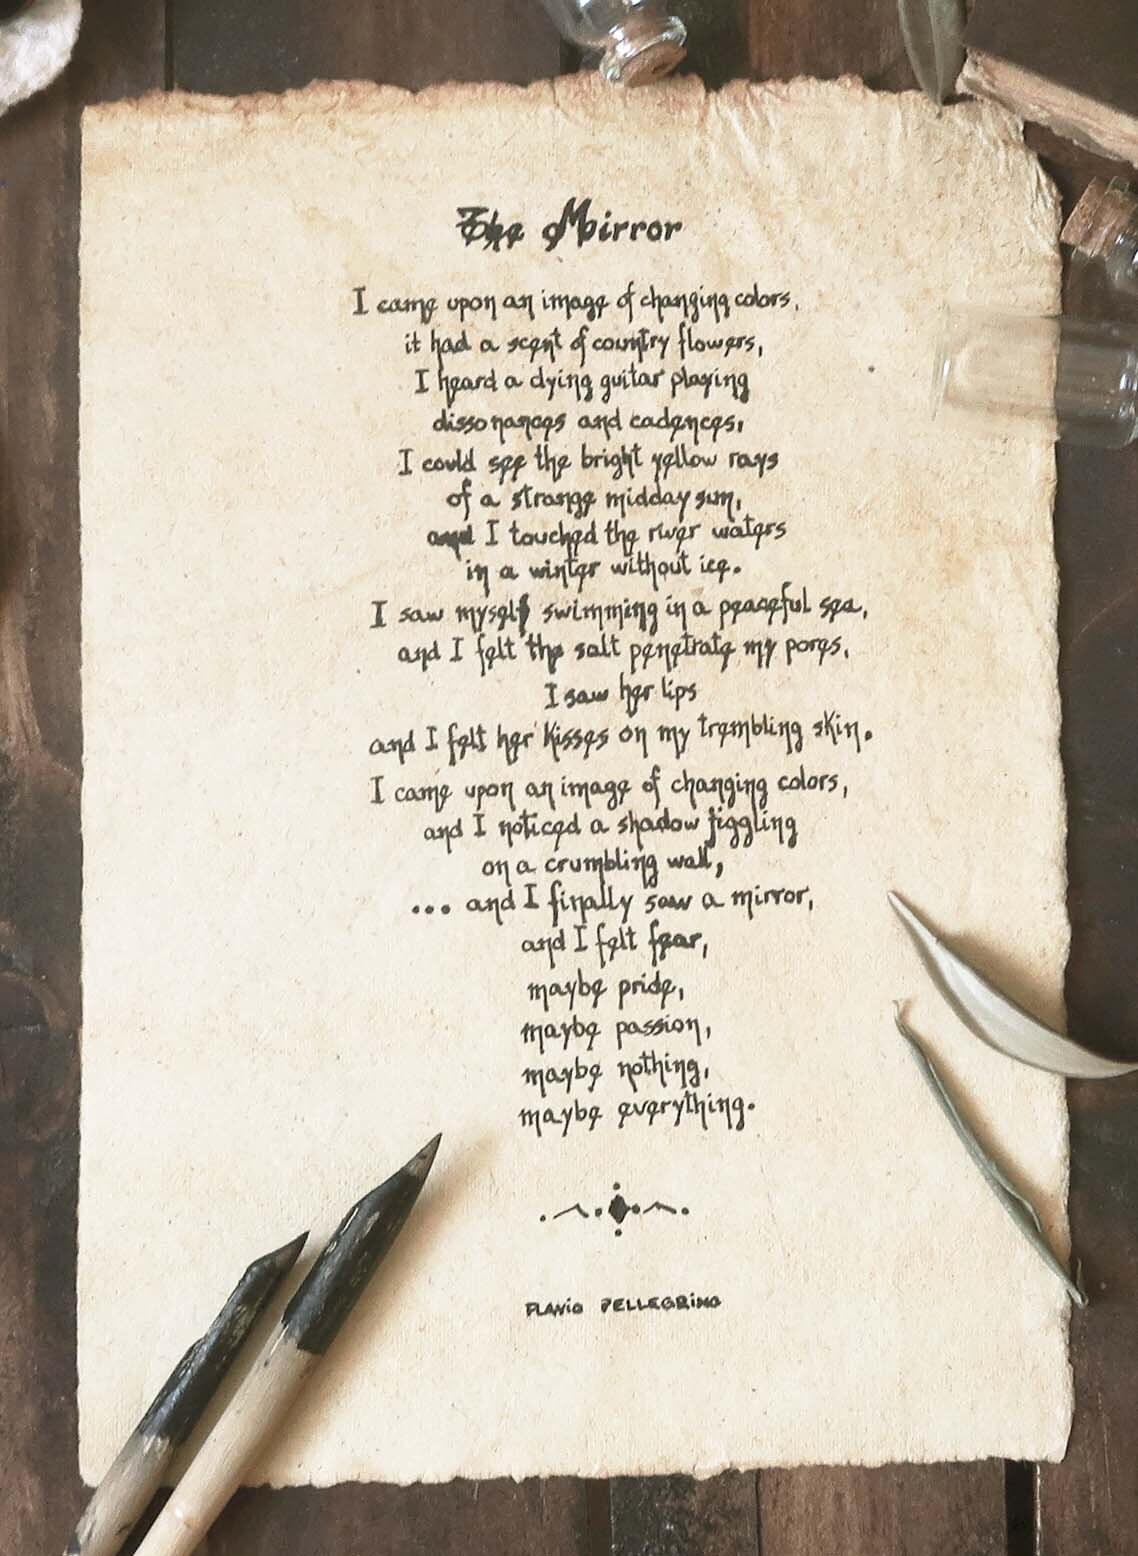 The Mirror
I came upon an image of changing colors,
it had a scent of country flowers,
I heard a dying guitar playing
dissonances and cadences,
I could see the bright yellow rays
of a strange midday sun,
and I touched the river waters
in a winter without ice.
I saw myself swimming in a peaceful sea,
and I felt the salt penetrate my pores,
I saw her lips
and I felt her kisses on my trembling skin.
I came upon an image of changing colors,
and I noticed a shadow jiggling
on a crumbling wall,
... and I finally saw a mirror,
and I felt fear,
maybe pride,
maybe passion,
maybe nothing,
maybe everything.
FLAVIO PELLEGRINO